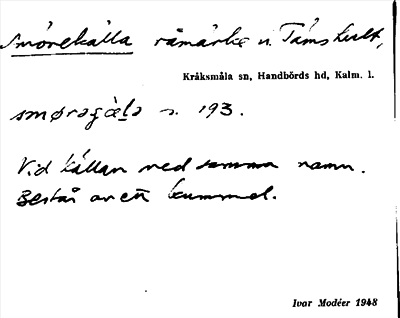 Smörekälla råmärke n. Tåmshult,
Kråksmåla sn, Handbörds hd, Kalm. l.
smøragæ̀lɑ s. 193.
Vid källan med samma namn.
Består av ett kummel.
Ivar Modéer 1948